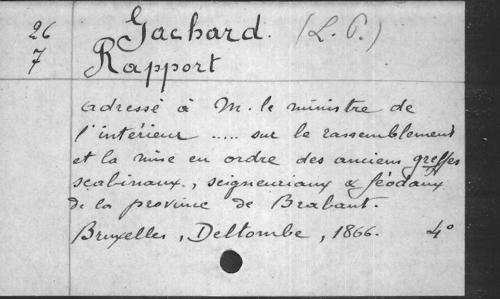 26 Gachard. (L. P.)
7 Rapport
adressé à M. le ministre de
l'intérieur ..... sur le rassemblement
et la mise en ordre des anciens greffes
scabinaux, seigneuriaux & féodaux
de la province de Brabant.
Bruxelles, Deltombe, 1866. 4°